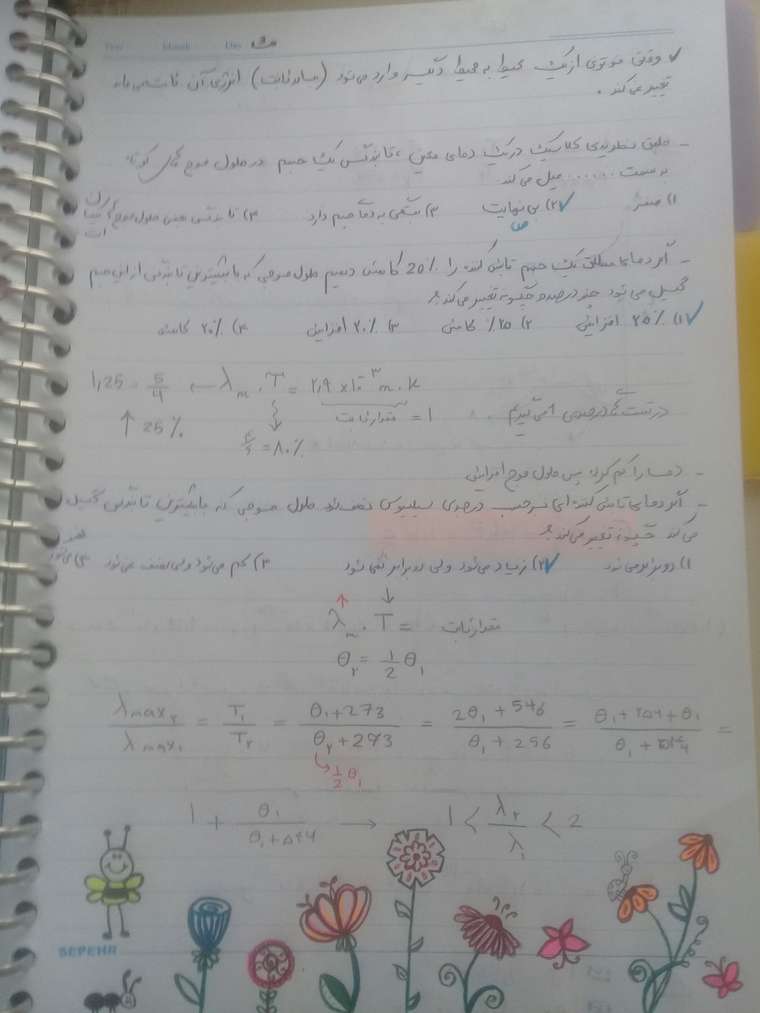 ✓ وقتی فوتونی از یک محیط به محیط دیگر وارد می‌شود (بسامد ثابت) انرژی آن ثابت می‌ماند
تغییر نمی‌کند .
- طبق نظریه‌ی کلاسیک در یک دمای معین ، تابندگی یک جسم در طول موج های کوتاه
به سمت ...... میل می‌کند
۱) صفر ۲) بی نهایت ۳) بستگی به دمای جسم دارد ۴) تابندگی طول موج
- اگر دمای مطلق یک جسم تابش کننده را 20٪ کاهش دهیم طول موجی که با بیشترین تابندگی از این جسم
گسیل می‌شود چند درصد و چگونه تغییر می‌کند؟
۱) ۲۵٪ افزایش ۲) ۲۵٪ کاهش ۳) ۲۰٪ افزایش ۴) ۲۰٪ کاهش
1,25 = 5/4 ← λm . T = ۲,۹ × ۱۰⁻³ m.k
↑ 25 ٪ = ۸۰٪ مقدار ثابت = 1 درصدی می‌گیریم
- دما را کم کرده پس طول موج افزایش
- اگر دمای تابش کننده‌ای برحسب درجه‌ی سیلسیوس نصف شود طول موجی که با بیشترین تابندگی گسیل
می کند چگونه تغییر می‌کند؟
۱) دو برابر می شود ۲) زیاد می‌شود ولی دو برابر نمی شود ۳) کم می‌شود ولی نصف نمی شود ۴) نصف می‌شود
↑ ↓
λm . T = مقدار ثابت
θ₂ = 1/2 θ₁
λmax₂ / λmax₁ = T₁ / T₂ = θ₁+273 / θ₂+273 = 2θ₁+546 / θ₁+546 = θ₁+۵۴۶+θ₁ / θ₁+۵۴۶ =
↳ 1/2 θ₁
1 + θ₁ / θ₁+۵۴۶ → 1 < λ₂/λ₁ < 2
SEPEHR